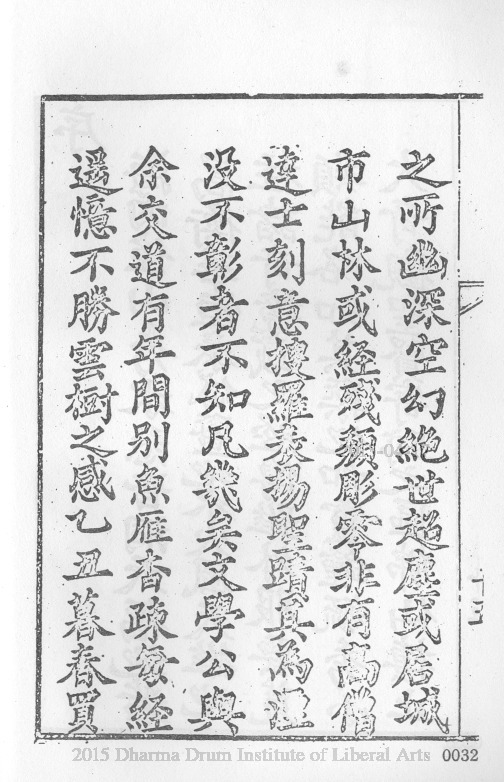 之所幽深空幻絶世超塵或居城
市山林或經殘頹彫零非有高僧
達士刻意搜羅表揚聖蹟真為湮
没不彰者不知凡幾矣文學公與
余交道有年間别魚雁杳疎每經
遥憶不勝雲樹之感乙丑暮春買
2015 Dharma Drum Institute of Liberal Arts 0032